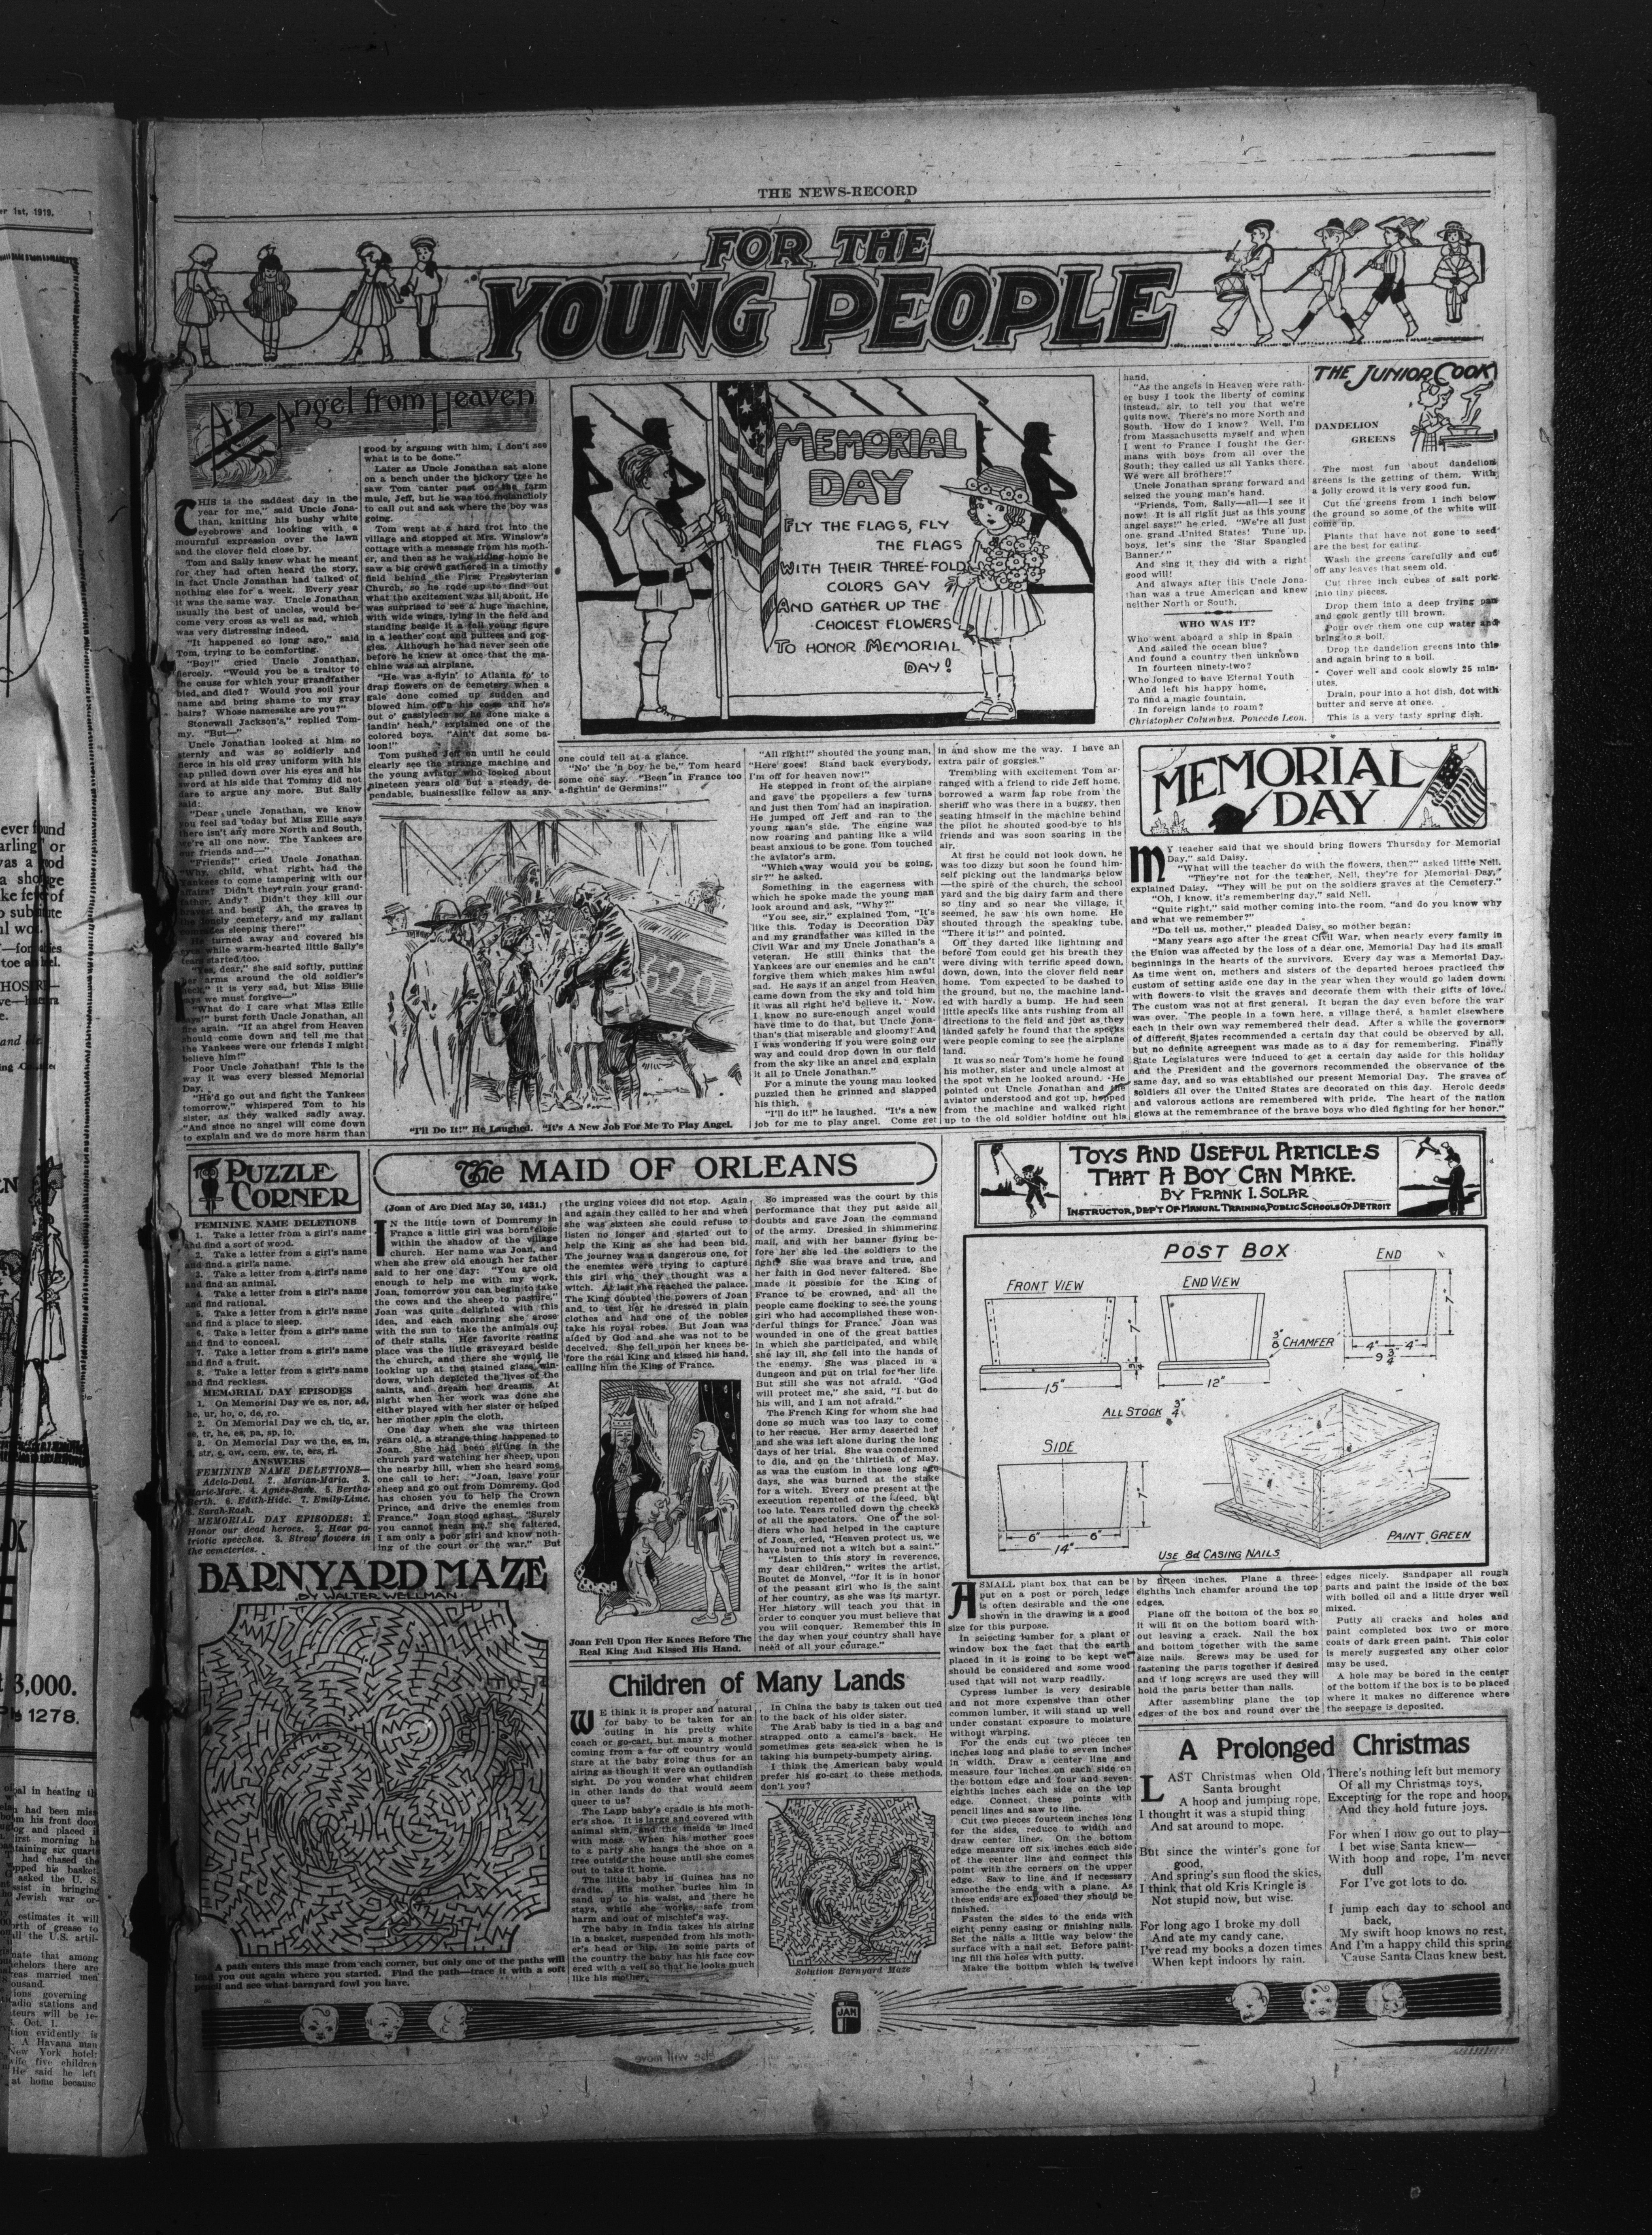 THE NEWS-RECORD
FOR THE
YOUNG PEOPLE
An Angel from Heaven
THIS is the saddest day in the
year for me," said Uncle Jona-
than, knitting his bushy white
eyebrows and looking with a
mournful expression over the lawn
and the clover field close by.
Tom and Sally knew what he meant
for they had often heard the story,
in fact Uncle Jonathan had talked of
nothing else for a week. Every year
it was the same way. Uncle Jonathan
usually the best of uncles, would be-
come very cross as well as sad, which
was very distressing indeed.
"It happened so long ago," said
Tom, trying to be comforting.
"Boy!" cried Uncle Jonathan,
fiercely. "Would you be a traitor to
the cause for which your grandfather
bled and died? Would you soil your
name and bring shame to my gray
hairs? Whose namesake are you?"
Stonewall Jackson's," replied Tom-
my. "But—"
Uncle Jonathan looked at him so
sternly and was so soldierly and
fierce in his old gray uniform with his
cap pulled down over his eyes and his
sword at his side that Tommy did not
dare to argue any more. But Sally
said:
"Dear uncle Jonathan, we know
you feel sad today but Miss Ellie says
there isn't any more North and South,
we're all one now. The Yankees are
our friends and—"
"Friends!" cried Uncle Jonathan.
"Why, child, what right had the
Yankees to come tampering with our
affairs? Didn't they ruin your grand-
father, Andy? Didn't they kill our
bravest and best? Ah, the graves in
the lonely cemetery, and my gallant
comrades sleeping there!"
He turned away and covered his
eyes while warm-hearted little Sally's
tears started too.
"Yes, dear," she said softly, putting
her arms around the old soldier's
neck, "it is very sad, but Miss Ellie
says we must forgive—"
"What do I care what Miss Ellie
says!" burst forth Uncle Jonathan, all
fire again. "If an angel from Heaven
should come down and tell me that
the Yankees were our friends I might
believe him!"
Poor Uncle Jonathan! This is the
way it was every blessed Memorial
Day.
"He'd go out and fight the Yankees
tomorrow," whispered Tom to his
sister, as they walked sadly away.
"And since no angel will come down
to explain and we do more harm than
good by arguing with him, I don't see
what is to be done."
Later as Uncle Jonathan sat alone
on a bench under the hickory tree he
saw Tom canter past on the farm
mule, Jeff, but he was too melancholy
to call out and ask where the boy was
going.
Tom went at a hard trot into the
village and stopped at Mrs. Winslow's
cottage with a message from his moth-
er, and then as he was riding home he
saw a big crowd gathered in a timothy
field behind the First Presbyterian
Church, so he rode up to find out
what the excitement was all about. He
was surprised to see a huge machine,
with wide wings, lying in the field and
standing beside it a tall young figure
in a leather coat and puttees and gog-
gles. Although he had never seen one
before he knew at once that the ma-
chine was an airplane.
"He was a-flyin' to Atlanta fo' to
drap flowers on de cemetery when a
gale done comed up sudden and
blowed him off'n his cose and he's
out o' gasslyleen so he done make a
landin' heah," explained one of the
colored boys. "Ain't dat some ba-
loon!"
Tom pushed Jeff on until he could
clearly see the strange machine and
the young aviator who looked about
nineteen years old but a steady, de-
pendable, businesslike fellow as any-
one could tell at a glance.
"No' the 'n boy he be," Tom heard
some one say. "Been in France too
a-fightin' de Germins!"
"I'll Do It!" He Laughed. "It's A New Job For Me To Play Angel.
"All right!" shouted the young man,
"Here goes! Stand back everybody,
I'm off for heaven now!"
He stepped in front of the airplane
and gave the propellers a few turns
and just then Tom had an inspiration.
He jumped off Jeff and ran to the
young man's side. The engine was
now roaring and panting like a wild
beast anxious to be gone. Tom touched
the aviator's arm.
"Which way would you be going,
sir?" he asked.
Something in the eagerness with
which he spoke made the young man
look around and ask, "Why?"
"You see, sir," explained Tom, "It's
like this. Today is Decoration Day
and my grandfather was killed in the
Civil War and my Uncle Jonathan's a
veteran. He still thinks that the
Yankees are our enemies and he can't
forgive them which makes him awful
sad. He says if an angel from Heaven
came down from the sky and told him
it was all right he'd believe it. Now,
I know no sure-enough angel would
have time to do that, but Uncle Jona-
than's that miserable and gloomy! And
I was wondering if you were going our
way and could drop down in our field
from the sky like an angel and explain
it all to Uncle Jonathan."
For a minute the young man looked
puzzled then he grinned and slapped
his thigh.
"I'll do it!" he laughed. "It's a new
job for me to play angel. Come get
in and show me the way. I have an
extra pair of goggles."
Trembling with excitement Tom ar-
ranged with a friend to ride Jeff home,
borrowed a warm lap robe from the
sheriff who was there in a buggy, then
seating himself in the machine behind
the pilot he shouted good-bye to his
friends and was soon soaring in the
air.
At first he could not look down, he
was too dizzy but soon he found him-
self picking out the landmarks below
—the spire of the church, the school
yard and the big dairy farm and there
so tiny and so near the village, it
seemed, he saw his own home. He
shouted through the speaking tube,
"There it is!" and pointed.
Off they darted like lightning and
before Tom could get his breath they
were diving with terrific speed down,
down, down, into the clover field near
home. Tom expected to be dashed to
the ground, but no, the machine land-
ed with hardly a bump. He had seen
little specks like ants rushing from all
directions to the field and just as they
landed safely he found that the specks
were people coming to see the airplane
land.
It was so near Tom's home he found
his mother, sister and uncle almost at
the spot when he looked around. He
pointed out Uncle Jonathan and the
aviator understood and got up, hopped
from the machine and walked right
up to the old soldier holding out his
hand.
"As the angels in Heaven were rath-
er busy I took the liberty of coming
instead, sir, to tell you that we're
quits now. There's no more North and
South. How do I know? Well, I'm
from Massachusetts myself and when
I went to France I fought the Ger-
mans with boys from all over the
South; they called us all Yanks there.
We were all brothers!"
Uncle Jonathan sprang forward and
seized the young man's hand.
"Friends, Tom, Sally—all—I see it
now! It is all right just as this young
angel says!" he cried. "We're all just
one grand United States! Tune up,
boys, let's sing the 'Star Spangled
Banner.'"
And sing it they did with a right
good will!
And always after this Uncle Jona-
than was a true American and knew
neither North or South.
WHO WAS IT?
Who went aboard a ship in Spain
And sailed the ocean blue?
And found a country then unknown
In fourteen ninety-two?
Who longed to have Eternal Youth
And left his happy home,
To find a magic fountain,
In foreign lands to roam?
Christopher Columbus. Poncede Leon.
MEMORIAL
DAY
FLY THE FLAGS, FLY
THE FLAGS
WITH THEIR THREE-FOLD
COLORS GAY
AND GATHER UP THE
CHOICEST FLOWERS
TO HONOR MEMORIAL
DAY!
THE JUNIOR COOK
DANDELION
GREENS
The most fun about dandelion
greens is the getting of them. With
a jolly crowd it is very good fun.
Cut the greens from 1 inch below
the ground so some of the white will
come up.
Plants that have not gone to seed
are the best for eating.
Wash the greens carefully and cut
off any leaves that seem old.
Cut three inch cubes of salt pork
into tiny pieces.
Drop them into a deep frying pan
and cook gently till brown.
Pour over them one cup water and
bring to a boil.
Drop the dandelion greens into this
and again bring to a boil.
Cover well and cook slowly 25 min-
utes.
Drain, pour into a hot dish, dot with
butter and serve at once.
This is a very tasty spring dish.
MEMORIAL
DAY
MY teacher said that we should bring flowers Thursday for Memorial
Day," said Daisy.
"What will the teacher do with the flowers, then?" asked little Nell.
"They're not for the teacher, Nell, they're for Memorial Day,"
explained Daisy. "They will be put on the soldiers graves at the Cemetery."
"Oh, I know, it's remembering day," said Nell.
"Quite right," said mother coming into the room, "and do you know why
and what we remember?"
"Do tell us, mother," pleaded Daisy, so mother began:
"Many years ago after the great Civil War, when nearly every family in
the Union was affected by the loss of a dear one, Memorial Day had its small
beginnings in the hearts of the survivors. Every day was a Memorial Day.
As time went on, mothers and sisters of the departed heroes practiced the
custom of setting aside one day in the year when they would go laden down
with flowers to visit the graves and decorate them with their gifts of love.
The custom was not at first general. It began the day even before the war
was over. The people in a town here, a village there, a hamlet elsewhere
each in their own way remembered their dead. After a while the governors
of different States recommended a certain day that could be observed by all,
but no definite agreement was made as to a day for remembering. Finally
State Legislatures were induced to set a certain day aside for this holiday
and the President and the governors recommended the observance of the
same day, and so was established our present Memorial Day. The graves of
soldiers all over the United States are decorated on this day. Heroic deeds
and valorous actions are remembered with pride. The heart of the nation
glows at the remembrance of the brave boys who died fighting for her honor."
PUZZLE
CORNER
FEMININE NAME DELETIONS
1. Take a letter from a girl's name
and find a sort of wood.
2. Take a letter from a girl's name
and find a girl's name.
3. Take a letter from a girl's name
and find an animal.
4. Take a letter from a girl's name
and find rational.
5. Take a letter from a girl's name
and find a place to sleep.
6. Take a letter from a girl's name
and find to conceal.
7. Take a letter from a girl's name
and find a fruit.
8. Take a letter from a girl's name
and find reckless.
MEMORIAL DAY EPISODES
1. On Memorial Day we es, nor, ad,
he, ur, ho, o, de, ro.
2. On Memorial Day we ch, tic, ar,
ee, tr, he, es, pa, sp, io.
3. On Memorial Day we the, es, in,
fl, str, e, ow, cem, ew, te, ers, ri.
ANSWERS
FEMININE NAME DELETIONS—
Adela-Deal. 2. Marian-Maria. 3.
Marie-Mare. 4. Agnes-Sane. 5. Bertha-
Berth. 6. Edith-Hide. 7. Emily-Lime.
8. Sarah-Rash.
MEMORIAL DAY EPISODES: 1.
Honor our dead heroes. 2. Hear pa-
triotic speeches. 3. Strew flowers in
the cemeteries.
BARNYARD MAZE
BY WALTER WELLMAN
A path enters this maze from each corner, but only one of the paths will
lead you out again where you started. Find the path—trace it with a soft
pencil and see what barnyard fowl you have.
The MAID OF ORLEANS
(Joan of Arc Died May 30, 1431.)
IN the little town of Domremy in
France a little girl was born close
within the shadow of the village
church. Her name was Joan, and
when she grew old enough her father
said to her one day: "You are old
enough to help me with my work,
Joan, tomorrow you can begin to take
the cows and the sheep to pasture."
Joan was quite delighted with this
idea, and each morning she arose
with the sun to take the animals out
of their stalls. Her favorite resting
place was the little graveyard beside
the church, and there she would lie
looking up at the stained glass win-
dows, which depicted the lives of the
saints, and dream her dreams. At
night when her work was done she
either played with her sister or helped
her mother spin the cloth.
One day when she was thirteen
years old, a strange thing happened to
Joan. She had been sitting in the
church yard watching her sheep, upon
the nearby hill, when she heard some
one call to her: "Joan, leave your
sheep and go out from Domremy. God
has chosen you to help the Crown
Prince, and drive the enemies from
France." Joan stood aghast. "Surely
you cannot mean me," she faltered,
I am only a poor girl and know noth-
ing of the court or the war." But
the urging voices did not stop. Again
and again they called to her and when
she was sixteen she could refuse to
listen no longer and started out to
help the King as she had been bid.
The journey was a dangerous one, for
the enemies were trying to capture
this girl who they thought was a
witch. At last she reached the palace.
The King doubted the powers of Joan
and to test her he dressed in plain
clothes and had one of the nobles
take his royal robes. But Joan was
aided by God and she was not to be
deceived. She fell upon her knees be-
fore the real King and kissed his hand,
calling him the King of France.
Joan Fell Upon Her Knees Before The
Real King And Kissed His Hand.
So impressed was the court by this
performance that they put aside all
doubts and gave Joan the command
of the army. Dressed in shimmering
mail, and with her banner flying be-
fore her she led the soldiers to the
fight. She was brave and true, and
her faith in God never faltered. She
made it possible for the King of
France to be crowned, and all the
people came flocking to see the young
girl who had accomplished these won-
derful things for France. Joan was
wounded in one of the great battles
in which she participated, and while
she lay ill, she fell into the hands of
the enemy. She was placed in a
dungeon and put on trial for her life.
But still she was not afraid. "God
will protect me," she said, "I but do
his will, and I am not afraid."
The French King for whom she had
done so much was too lazy to come
to her rescue. Her army deserted her
and she was left alone during the long
days of her trial. She was condemned
to die, and on the thirtieth of May,
as was the custom in those long ago
days, she was burned at the stake
for a witch. Every one present at the
execution repented of the deed, but
too late. Tears rolled down the cheeks
of all the spectators. One of the sol-
diers who had helped in the capture
of Joan, cried, "Heaven protect us, we
have burned not a witch but a saint."
"Listen to this story in reverence,
my dear children," writes the artist,
Boutet de Monvel, "for it is in honor
of the peasant girl who is the saint
of her country, as she was its martyr.
Her history will teach you that in
order to conquer you must believe that
you will conquer. Remember this in
the day when your country shall have
need of all your courage."
Children of Many Lands
WE think it is proper and natural
for baby to be taken for an
outing in his pretty white
coach or go-cart, but many a mother
coming from a far off country would
stare at the baby going thus for an
airing as though it were an outlandish
sight. Do you wonder what children
in other lands do that would seem
queer to us?
The Lapp baby's cradle is his moth-
er's shoe. It is large and covered with
animal skin, and the inside is lined
with moss. When his mother goes
to a party she hangs the shoe on a
tree outside the house until she comes
out to take it home.
The little baby in Guinea has no
cradle. His mother buries him in
sand up to his waist, and there he
stays, while she works, safe from
harm and out of mischief's way.
The baby in India takes his airing
in a basket, suspended from his moth-
er's head or hip. In some parts of
the country the baby has his face cov-
ered with a veil so that he looks much
like his mother.
In China the baby is taken out tied
to the back of his older sister.
The Arab baby is tied in a bag and
strapped onto a camel's back. He
sometimes gets sea-sick when he is
taking his bumpety-bumpety airing.
I think the American baby would
prefer his go-cart to these methods,
don't you?
Solution Barnyard Maze
TOYS AND USEFUL ARTICLES
THAT A BOY CAN MAKE.
BY FRANK I. SOLAR
INSTRUCTOR, DEP'T OF MANUAL TRAINING, PUBLIC SCHOOLS OF DETROIT
POST BOX
FRONT VIEW
END VIEW
END
7"
3/4"
15"
12"
3/8" CHAMFER
7"
4" 4"
9 3/4"
ALL STOCK 3/4"
SIDE
7"
6" 6"
14"
PAINT GREEN
USE 8d CASING NAILS
A SMALL plant box that can be
put on a post or porch ledge
is often desirable and the one
shown in the drawing is a good
size for this purpose.
In selecting lumber for a plant or
window box the fact that the earth
placed in it is going to be kept wet
should be considered and some wood
used that will not warp readily.
Cypress lumber is very desirable
and not more expensive than other
common lumber, it will stand up well
under constant exposure to moisture
without warping.
For the ends cut two pieces ten
inches long and plane to seven inches
in width. Draw a center line and
measure four inches on each side on
the bottom edge and four and seven-
eighths inches each side on the top
edge. Connect these points with
pencil lines and saw to line.
Cut two pieces fourteen inches long
for the sides, reduce to width and
draw center lines. On the bottom
edge measure off six inches each side
of the center line and connect this
point with the corners on the upper
edge. Saw to line and if necessary
smoothe the ends with a plane. As
these ends are exposed they should be
finished.
Fasten the sides to the ends with
eight penny casing or finishing nails.
Set the nails a little way below the
surface with a nail set. Before paint-
ing fill the holes with putty.
Make the bottom which is twelve
by fifteen inches. Plane a three-
eighths inch chamfer around the top
edges.
Plane off the bottom of the box so
it will fit on the bottom board with-
out leaving a crack. Nail the box
and bottom together with the same
size nails. Screws may be used for
fastening the parts together if desired
and if long screws are used they will
hold the parts better than nails.
After assembling plane the top
edges of the box and round over the
edges nicely. Sandpaper all rough
parts and paint the inside of the box
with boiled oil and a little dryer well
mixed.
Putty all cracks and holes and
paint completed box two or more
coats of dark green paint. This color
is merely suggested any other color
may be used.
A hole may be bored in the center
of the bottom if the box is to be placed
where it makes no difference where
the seepage is deposited.
A Prolonged Christmas
LAST Christmas when Old
Santa brought
A hoop and jumping rope,
I thought it was a stupid thing
And sat around to mope.
But since the winter's gone for
good,
And spring's sun flood the skies,
I think that old Kris Kringle is
Not stupid now, but wise.
For long ago I broke my doll
And ate my candy cane,
I've read my books a dozen times
When kept indoors by rain.
There's nothing left but memory
Of all my Christmas toys,
Excepting for the rope and hoop,
And they hold future joys.
For when I now go out to play—
I bet wise Santa knew—
With hoop and rope, I'm never
dull
For I've got lots to do.
I jump each day to school and
back,
My swift hoop knows no rest,
And I'm a happy child this spring
'Cause Santa Claus knew best.
JAM
er 1st, 1919.
3,000.
1278.